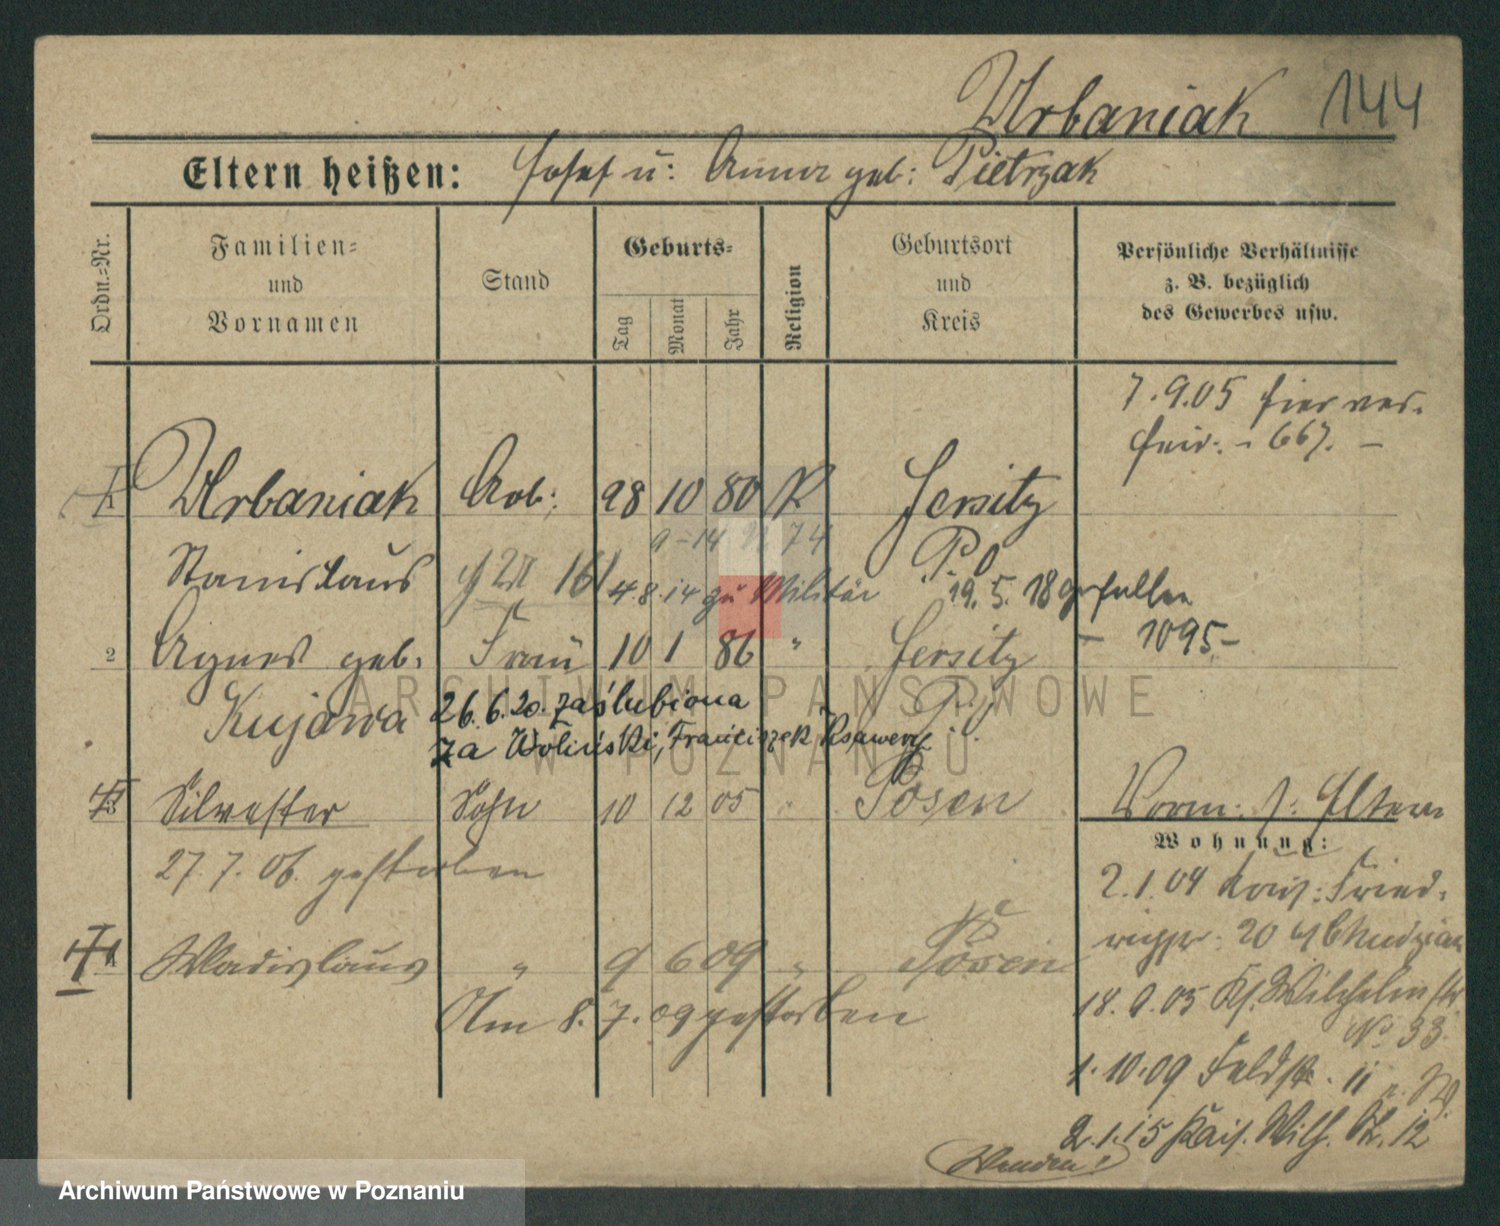 Urbaniak 144
Eltern heißen: Josef u: Anna geb: Pietrzak
Ordn.=Nr.
Familien=
und
Vornamen
Stand
Geburts=
Tag
Monat
Jahr
Religion
Geburtsort
und
Kreis
Persönliche Verhältnisse
z. B. bezüglich
des Gewerbes usw.
7.9.05 hier ver-
heir: - 667. -
1 Urbaniak Arb: 28 10 80 K Jersitz
Stanislaus 161 P.O
4.8.14 zu Militär 19.5.18 gefallen
- 1095 -
2 Agnes geb. Frau 10 1 86 " Jersitz
Kujawa 26.6.20. zaślubiona P.O
za Woliński, Franciszek Ksawery
3 Silvester Sohn 10 12 05 " Posen
27.7.06. gestorben
Vorm: s: Eltern
Wohnung:
2.1.04 Kais: Fried-
20 Chudziak
4 Wladislaus " 9 6 09 " Posen
Am 8.7.09 gestorben
18.9.05 Ks. Wilhelmstr
No 33.
1.10.09 Feldstr. 11
2.1.15 Kais. Wilh. Str. 12
Wenden!
ARCHIWUM PAŃSTWOWE
W POZNANIU
Archiwum Państwowe w Poznaniu